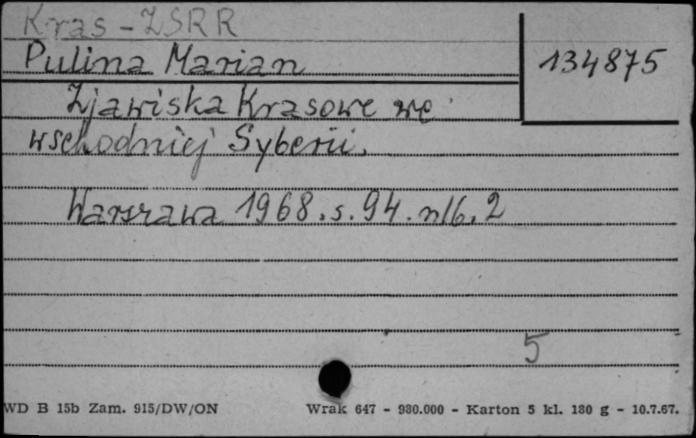 Kras - ZSRR
Pulina Marian
134875
Zjawiska Krasowe we
wschodniej Syberii.
Warszawa 1968. s. 94. nlb. 2
5
WD B 15b Zam. 915/DW/ON
Wrak 647 - 980.000 - Karton 5 kl. 180 g - 10.7.67.